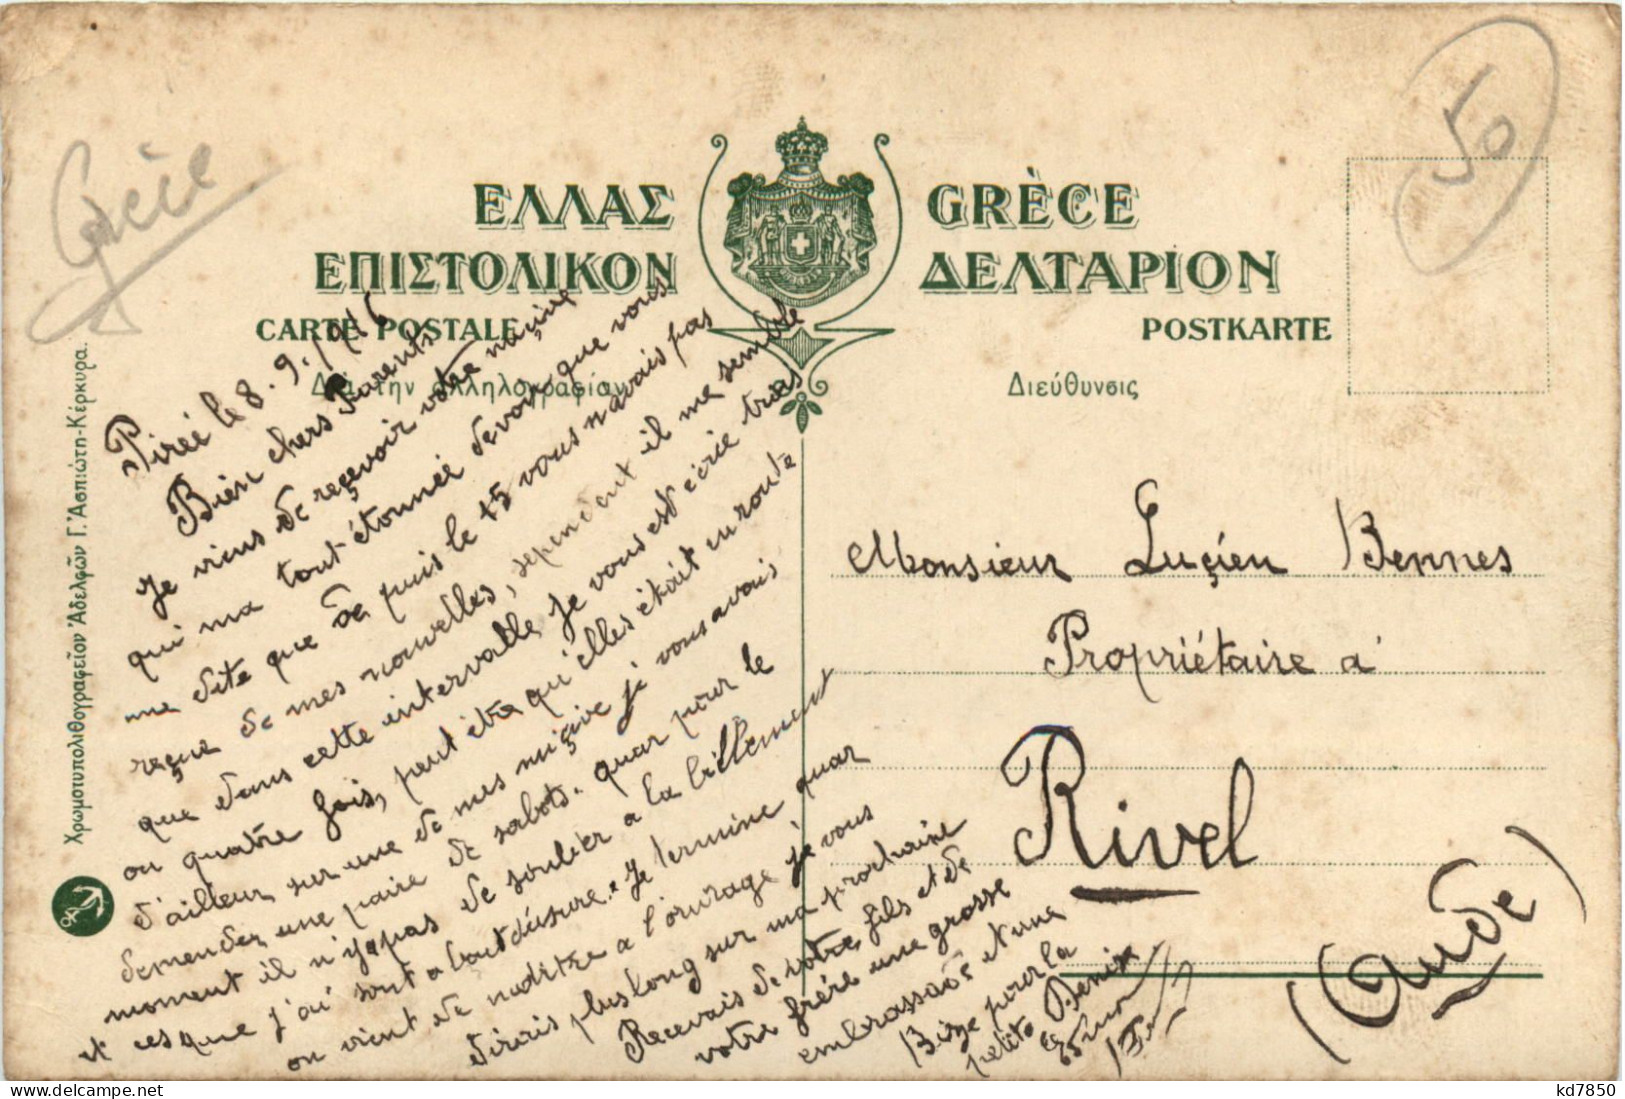 Grèce
50
ΕΛΛΑΣ GRÈCE
ΕΠΙΣΤΟΛΙΚΟΝ ΔΕΛΤΑΡΙΟΝ
CARTE POSTALE POSTKARTE
Διὰ τὴν ἀλληλογραφίαν Διεύθυνσις
Χρωμοτυπολιθογραφεῖον Ἀδελφῶν Γ. Ἀσπιώτη-Κέρκυρα.
Pirée le 8. 9. 1916
Bien chers Parents
Je viens de reçevoir votre miçive
qui ma tout étonnée devoir que vous
me dite que de puis le 15 vous n'avais pas
reçue de mes nouvelles, sependent il me semble
que dans cette intervalle je vous est écrie trois
ou quatre fois, peut être qu'elles était en route
d'ailleur sur une de mes miçive je vous avais
demander une paire de sabots. quar pour le
moment il n'y a pas de soulier a la billement
et ces que j'ai sont a bout d'usure. Je termine quar
on vient de nos a l'ouvrage je vous
dirais plus long sur ma prochaine
Recevais de votre fils et de
votre frère une grosse
embrassade et une
Bize pour la
petite Denise
Monsieur Luçien Bennes
Propriétaire a
Rivel
(Aude)
kd7850